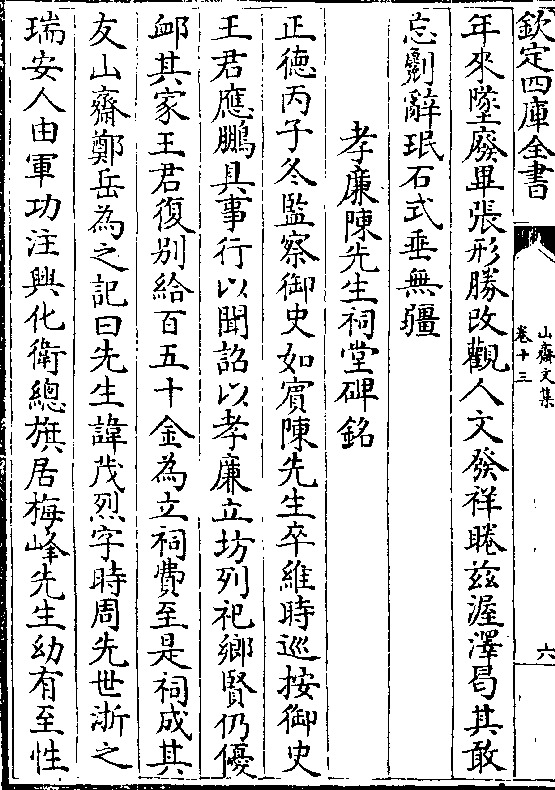 欽定四庫全書
山齋文集
卷十三
六
年來墜廢畢張形勝改觀人文發祥睠兹渥澤曷其敢
忘劖辭珉石式垂無疆
孝廉陳先生祠堂碑銘
正徳丙子冬監察御史如賓陳先生卒維時巡按御史
王君應鵬具事行以聞詔以孝廉立坊列祀鄉賢仍優
䘏其家王君復別給百五十金為立祠費至是祠成其
友山齋鄭岳為之記曰先生諱茂烈字時周先世浙之
瑞安人由軍功注興化衛總旗居梅峰先生幼有至性